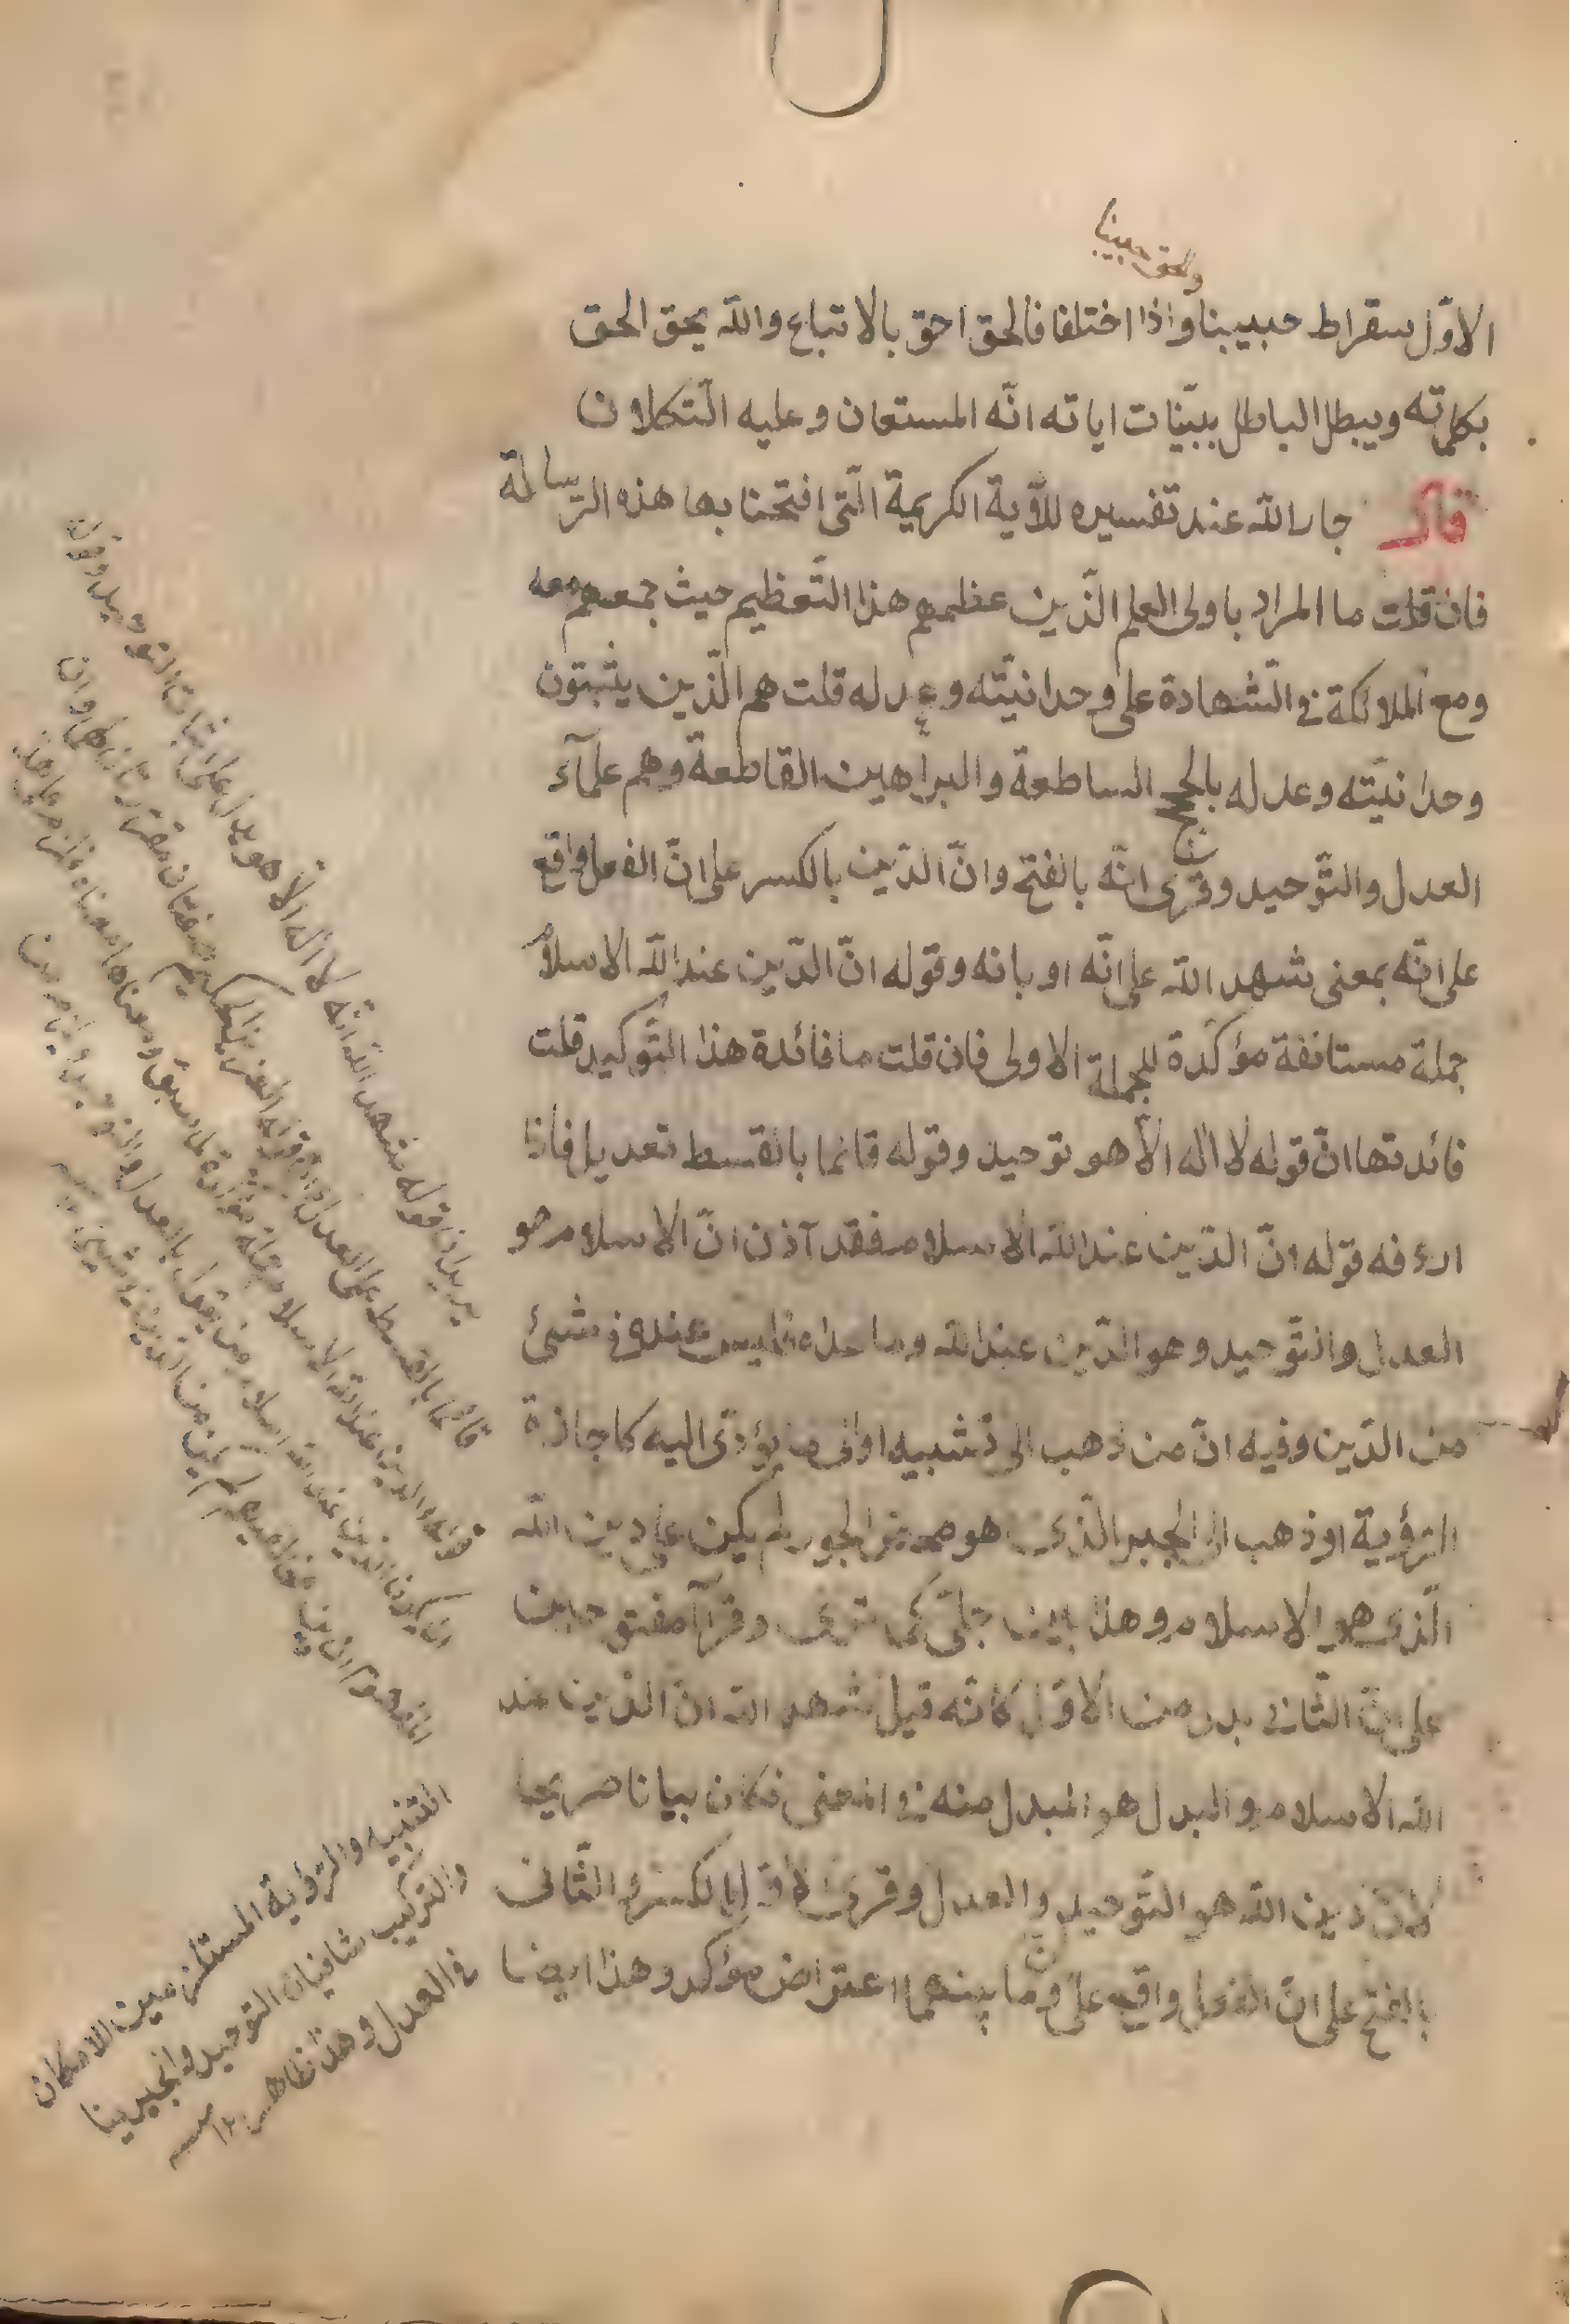 والحق حبيبنا
الاوّل سقراط حبيبنا واذا اختلفا فالحق احق بالاتباع والله يحق الحق
بكلماته ويبطل الباطل ببيّنات اياته انّه المستعان وعليه التّكلان
قال جار الله عند تفسيره للآية الكريمة الّتى افتحنا بها هذه الرّسالة
فان قلت ما المراد باولى العلم الذّين عظمهم هذا التّعظيم حيث جمعهم معه
ومع الملائكة فى الشّهادة على وحدانيّته وعدله قلت هم الّذين يثبتون
وحدانيّته وعدله بالحجج الساطعة والبراهين القاطعة وهم علمآء
العدل والتّوحيد وقرئ انّه بالفتح وانّ الدّين بالكسر على انّ الفعل واقع
على انّه بمعنى شهد الله على انّه او بانه وقوله انّ الدّين عند الله الاسلام
جملة مستانفة مؤكّدة للجملة الاولى فان قلت ما فائدة هذا التّوكيد قلت
فائدتها انّ قوله لا اله الّا هو توحيد وقوله قائما بالقسط تعديل فاذا
اردفه قوله انّ الدّين عند الله الاسلام فقد آذن انّ الاسلام هو
العدل والتّوحيد وهو الدّين عند الله وما عداه فليس عنده فى شئ
من الدّين وفيه انّ من ذهب الى تشبيه او الى ما يؤدّى اليه كاجازة
الرّؤية او ذهب الى الجبر الّذى هو محض الجور لم يكن على دين الله
الّذى هو الاسلام وهذا بين جلىّ كما ترى وقرآ مفتوحين
على انّ الثّانى بدل من الاوّل كانّه قيل شهد الله انّ الدّين عند
الله الاسلام والبدل هو المبدل منه فى المعنى فكان بيانا صريحا
لانّ دين الله هو التّوحيد والعدل وقرئ الاوّل بالكسر والثّانى
بالفتح على انّ الفعل واقع على انّ وما بينهما اعتراض مؤكد وهذا ايضا
يريد ان قوله شهد الله انّه لا اله الّا هو يدل على اثبات التوحيد وقوله
قائما بالقسط على العدل العزيز الحكيم صفتان
ان الدين عند الله الاسلام جملة مؤكدة لما سبق
التشبيه والرّؤية المستلزمين للامكان
والتركيب ينافيان التوحيد والجبر ينا
فى العدل وهذا ظاهر ١٢ منه